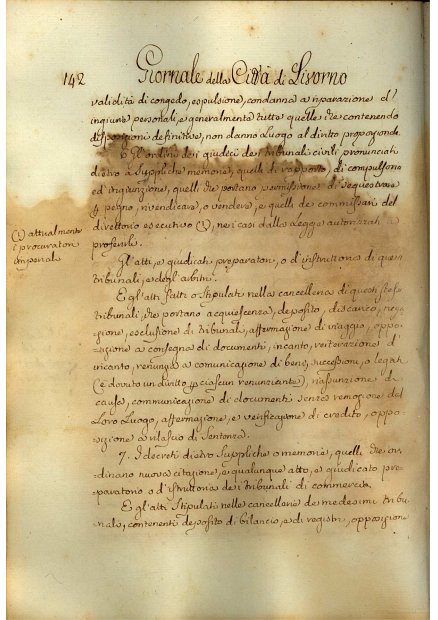 142
Giornale della Città di Livorno
validità di congedo, espulsione, condanna a riparazione d'
ingiurie personali, e generalmente tutte quelle che contenendo
disposizioni definitive, non danno luogo al diritto proporzionale.
6 Gl'ordini dei giudici dei tribunali civili pronunciati
dietro a suppliche memorie, quelli di rapporto, di compulsoria
ed'ingiunzione, quelli che portano permissione di sequestrare
a pegno, rivendicare, o vendere, e quelli de commissari del
direttorio esecutivo (1), nei casi dalla Legge autorizzati a
proferirli.
(1) attualmente
i procuratori
imperiali
Gl'atti, e giudicati preparatori, o d'instruttoria di questi
tribunali, e degl'arbitri.
E gl'atti fatti o stipulati nella cancelleria di questi stessi
tribunali, che portano acquiescenza, deposito, discarico,
esclusione di tribunal, affermazione di viaggio, oppo-
sizione a consegna di documenti, incanto, reiterazione d'
incanto, renunzia a comunicazione di beni, successioni, o legati
(è dovuto un diritto per ciascun renunziante), riassunzione di
cause, communicazione di documenti senza remozione dal
Loro Luogo, affermazione, e verificazione di credito, oppo-
sizione a rilascio di sentenza.
7. I decreti dietro suppliche o memorie, quelli che or-
dinano nuova citazione, e qualunque atto, e giudicato pre-
paratorio o d'istruttoria dei tribunali di commercio.
E gl'atti stipulati nelle cancellerie de medesimi tribu-
nali, contenenti deposito di bilancio, e di registri, opposizione